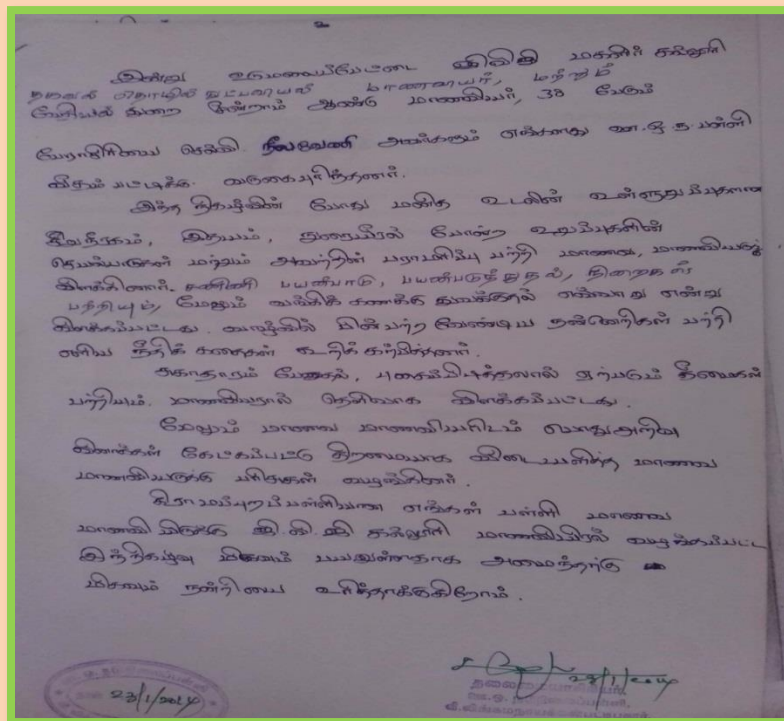 இன்று உடுமலைப்பேட்டை ஜி.வி.ஜி மகளிர் கல்லூரி
தகவல் தொழில் நுட்பவியல் மாணவியர், மற்றும்
வேதியல் துறை மூன்றாம் ஆண்டு மாணவியர், 38 பேரும்
பேராசிரியை செல்வி. நீலவேணி அவர்களும் எங்களது ஊ.ஒ.ந.பள்ளி
வருகைபுரிந்தனர்.
இந்த நிகழ்வின் போது மனித உடலின் உள்ளுறுப்புகளான
சிறுநீரகம், இதயம், நுரையீரல் போன்ற உறுப்புகளின்
செயல்பாடுகள் மற்றும் அவற்றின் பராமரிப்பு பற்றி மாணவ, மாணவியருக்கு
விளக்கினார். கணினி பயன்பாடு, பயன்படுத்துதல், நிறைகள்
பற்றியும், மேலும் வங்கிக் கணக்கு துவக்குதல் எவ்வாறு என்று
விளக்கப்பட்டது. வாழ்வில் பின்பற்ற வேண்டிய நன்னெறிகள் பற்றி
எளிய நீதிக் கதைகள் கூறிக் கற்பித்தனர்.
சுகாதாரம் பேணுதல், புகைப்பிடித்தலால் ஏற்படும் தீமைகள்
பற்றியும். மாணவிகளால் தெளிவாக விளக்கப்பட்டது.
மேலும் மாணவ மாணவியரிடம் பொதுஅறிவு
வினாக்கள் கேட்கப்பட்டு திறமையாக விடையளித்த மாணவ
மாணவியருக்கு பரிசுகள் வழங்கினர்.
கிராமப்புறப்பள்ளியான எங்கள் பள்ளி மாணவ
ஜி.வி.ஜி கல்லூரி வழங்கப்பட்ட
இந்நிகழ்வு மிகவும் பயனுள்ளதாக அமைந்தற்கு
மிகவும் நன்றியை உரித்தாக்குகிறோம்.
23/1/2014
23/1/2014
தலைமையாசிரியர்